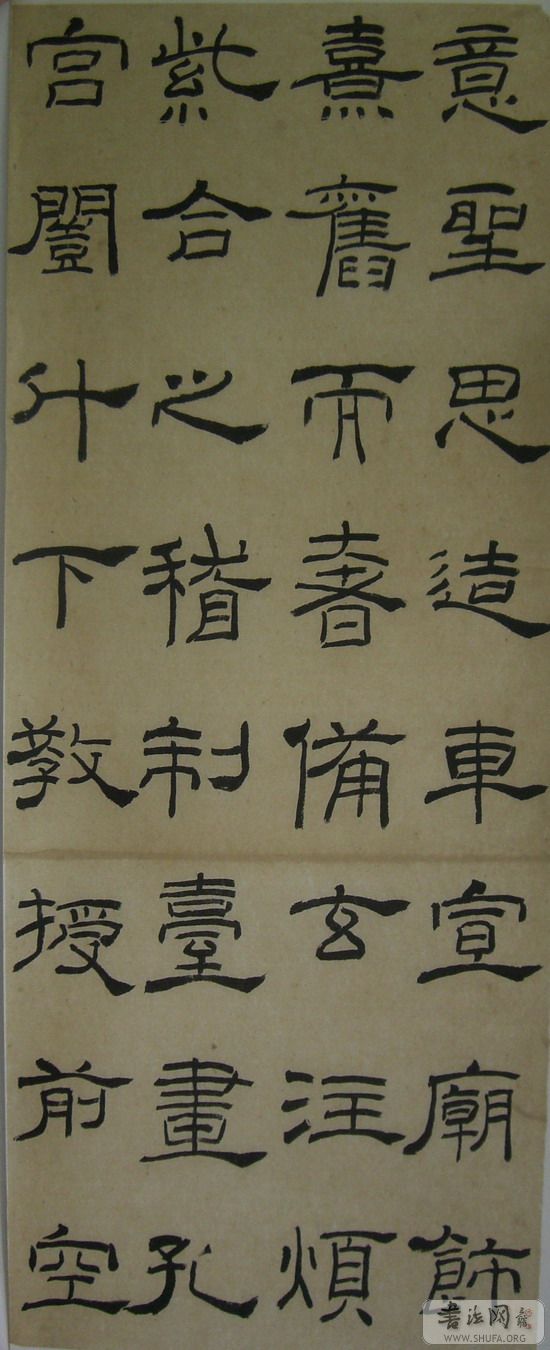 意聖思造車宣廟飾
熹舊而耆備玄注煩
紫合之稽制臺畫孔
宮闓什下教授前空
書法网
WWW.SHUFA.ORG